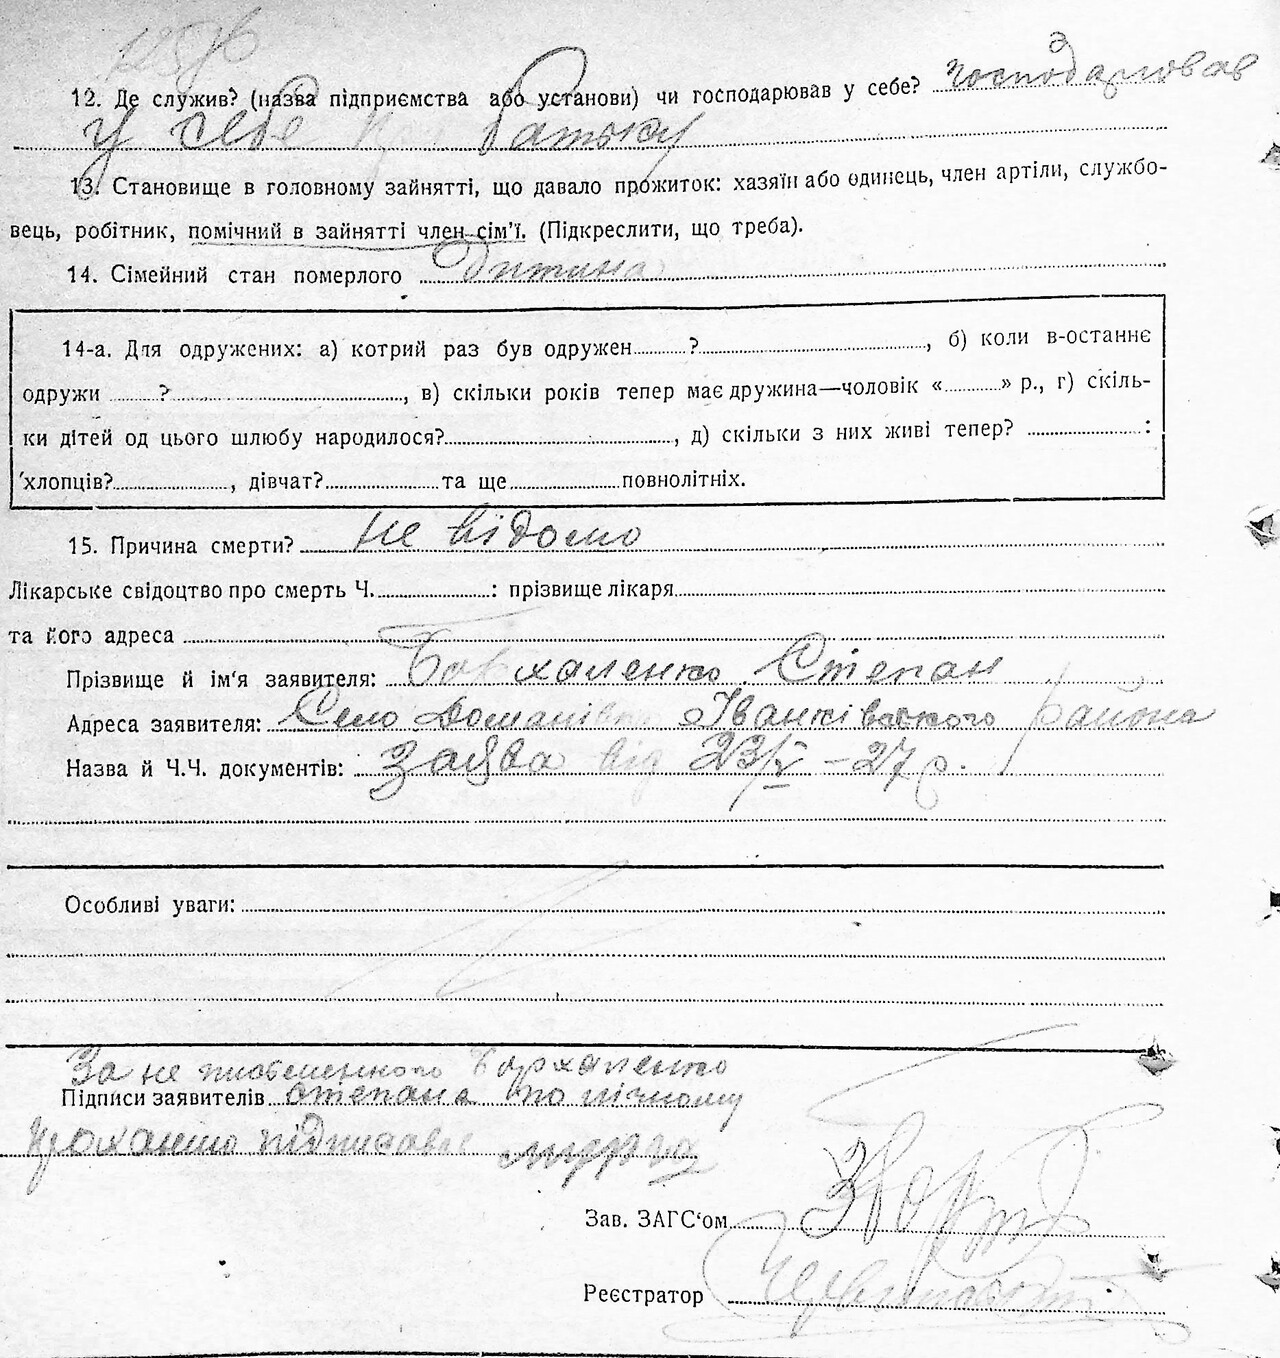 12. Де служив? (назва підприємства або установи) чи господарював у себе? господарював
у себе при батьку
13. Становище в головному зайнятті, що давало прожиток: хазяїн або одинець, член артіли, службо-
вець, робітник, помічний в зайнятті член сім'ї. (Підкреслити, що треба).
14. Сімейний стан померлого Дитина
14-а. Для одружених: а) котрий раз був одружен ? , б) коли в-останнє
одружи ? , в) скільки років тепер має дружина—чоловік « » р., г) скіль-
ки дітей од цього шлюбу народилося? , д) скільки з них живі тепер? :
хлопців? , дівчат? та ще повнолітніх.
15. Причина смерти? не відомо
Лікарське свідоцтво про смерть Ч. : прізвище лікаря
та його адреса
Прізвище й ім'я заявителя: Бархаленко Степан
Адреса заявителя: Село Доманівка Іванківського района
Назва й Ч.Ч. документів: Заява від 23/V – 27 р.
Особливі уваги:
За не письменного Бархаленко
Підписи заявителів степана по лічному
проханню підписавсь
Зав. ЗАГС'ом
Реєстратор